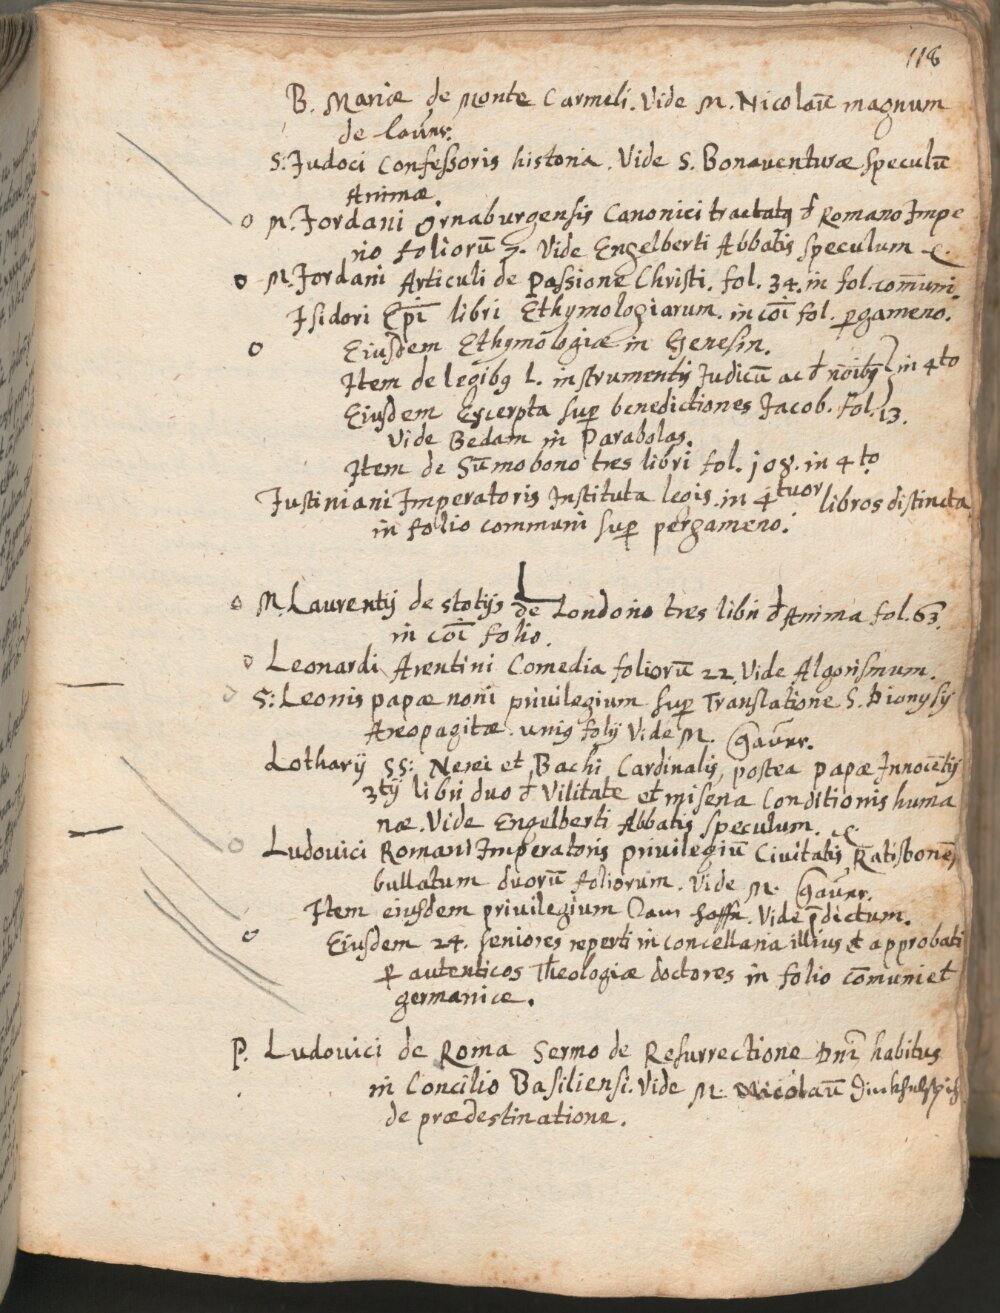 118
B. Mariæ de Monte Carmeli. Vide M. Nicolaū magnum
de Iaūer.
S. Judoci Confeßoris historia. Vide S. Bonaventuræ Speculū
Animæ.
o M. Jordani Ornaburgensis Canonici tractatꝯ đ Romano Impe
rio foliorū 7. Vide Engelberti Abbatis speculum &.
o M. Jordani Articuli de Passione Christi. fol. 34. in fol. com̄uni.
Isidori Ep̄i libri Ethymologiarum. in cōi fol. ꝑgameno.
o Eiusdem Ethymologiæ in Genesin.
Item de legibꝯ l. instrumentis Judicū ac đ nōībꝯ } in 4to
Eiusdem Excerpta suꝑ benedictiones Jacob. fol. 13.
Vide Bedam in Parabolas.
Item de Sūmo bono tres libri fol. 108. in 4to
Justiniani Imperatoris Instituta legis. in 4tuor libros distincta
in folio communi suꝑ pergameno.
L
o M. Laurentij de stotijs de Londorio tres libri đ Anima fol. 63.
in cōi folio.
o Leonardi Arentini Comedia foliorū 22. Vide Algorismum.
o S: Leonis papæ noni privilegium suꝑ Translatione S. Dionysij
Areopagitæ. unius folij Vide M. Gaūer.
Lotharij SS: Nerei et Bachi Cardinalis, postea papæ Innocētij
3tij libri duo đ Vilitate et miseria Conditionis huma
næ. Vide Engelberti Abbatis speculum. &.
o Ludovici Romani Imperatoris privilegiū Civitatis Ratisbonē
bullatum duorū foliorum. Vide M. Gaūer.
Item eiusdem privilegium Vide p̄dictum.
o Eiusdem 24. seniores reperti in concellaria illius et approbati
ꝑ autenticos Theologiæ doctores in folio com̄uni et
germanice.
P. Ludovici de Roma Sermo de Resurrectione Dn̄i habitus
in Concilio Basiliensi. Vide M. Nicolaū
de prædestinatione.